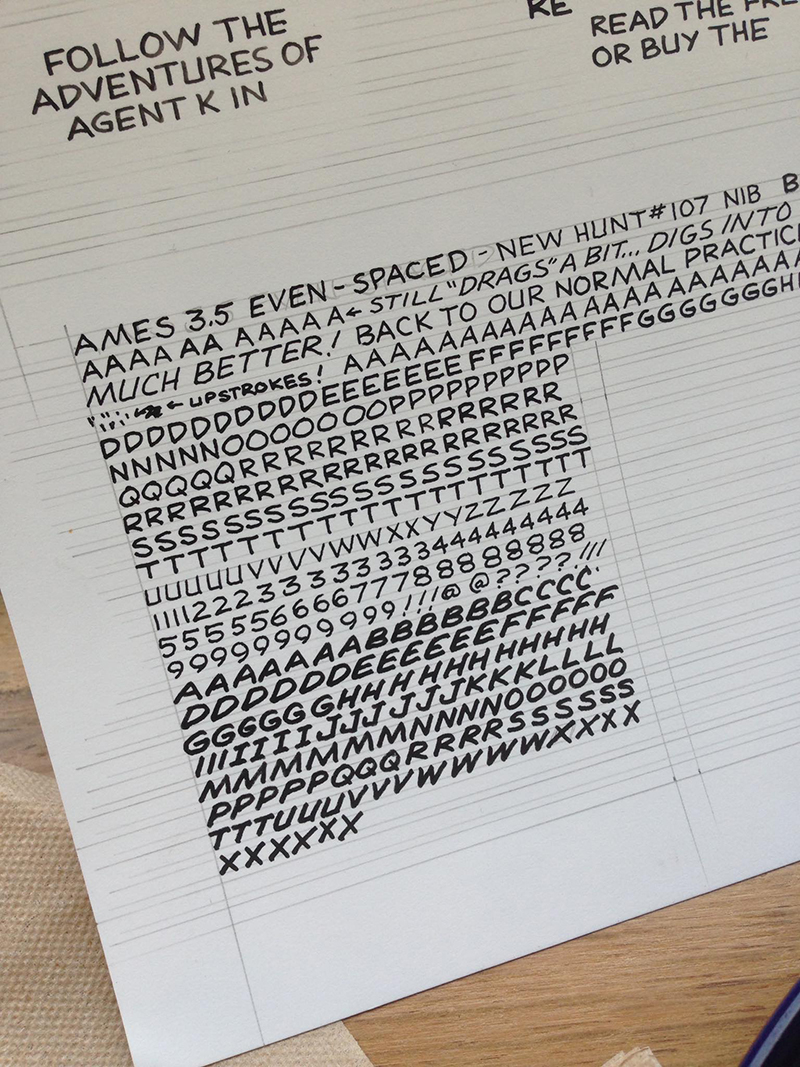 FOLLOW THE
ADVENTURES OF
AGENT K IN
RE
READ THE FRE
OR BUY THE
AMES 3.5 EVEN-SPACED - NEW HUNT #107 NIB B
AAAA AA AAAAA← STILL "DRAGS" A BIT... DIGS INTO
MUCH BETTER! BACK TO OUR NORMAL PRACTIC
← UPSTROKES! AAAAAAAAAAAAAA AAAAAAAA
DDDDDDDDDDEEEEEEEFFFFFFFFFGGGGGGGH
NNNNNOOOOOOOPPPPPPPPPP
QQQQQRRRRRRRRRRRRRRR
RRRRRRRRRRRRRRRRRRRR
SSSSSSSSSSSSSSSSSSSSS
TTTTTTTTTTTTTTTTTTTT
UUUUUVVVVWWXXYYZZZZZ
11112223333333444444444
555556666677788888888
99999999999!!!@ @????!!!
AAAAAAABBBBBBCCCC
DDDDDDEEEEEEFFFFF
GGGGGGHHHHHHHHHH
IIIIIIIJJJJJJKKKLLLL
MMMMMMMNNNNOOOOOO
PPPPPQQQRRRRSSSSSS
TTTUUUVVVWWWWWXXXX
XXXXXX